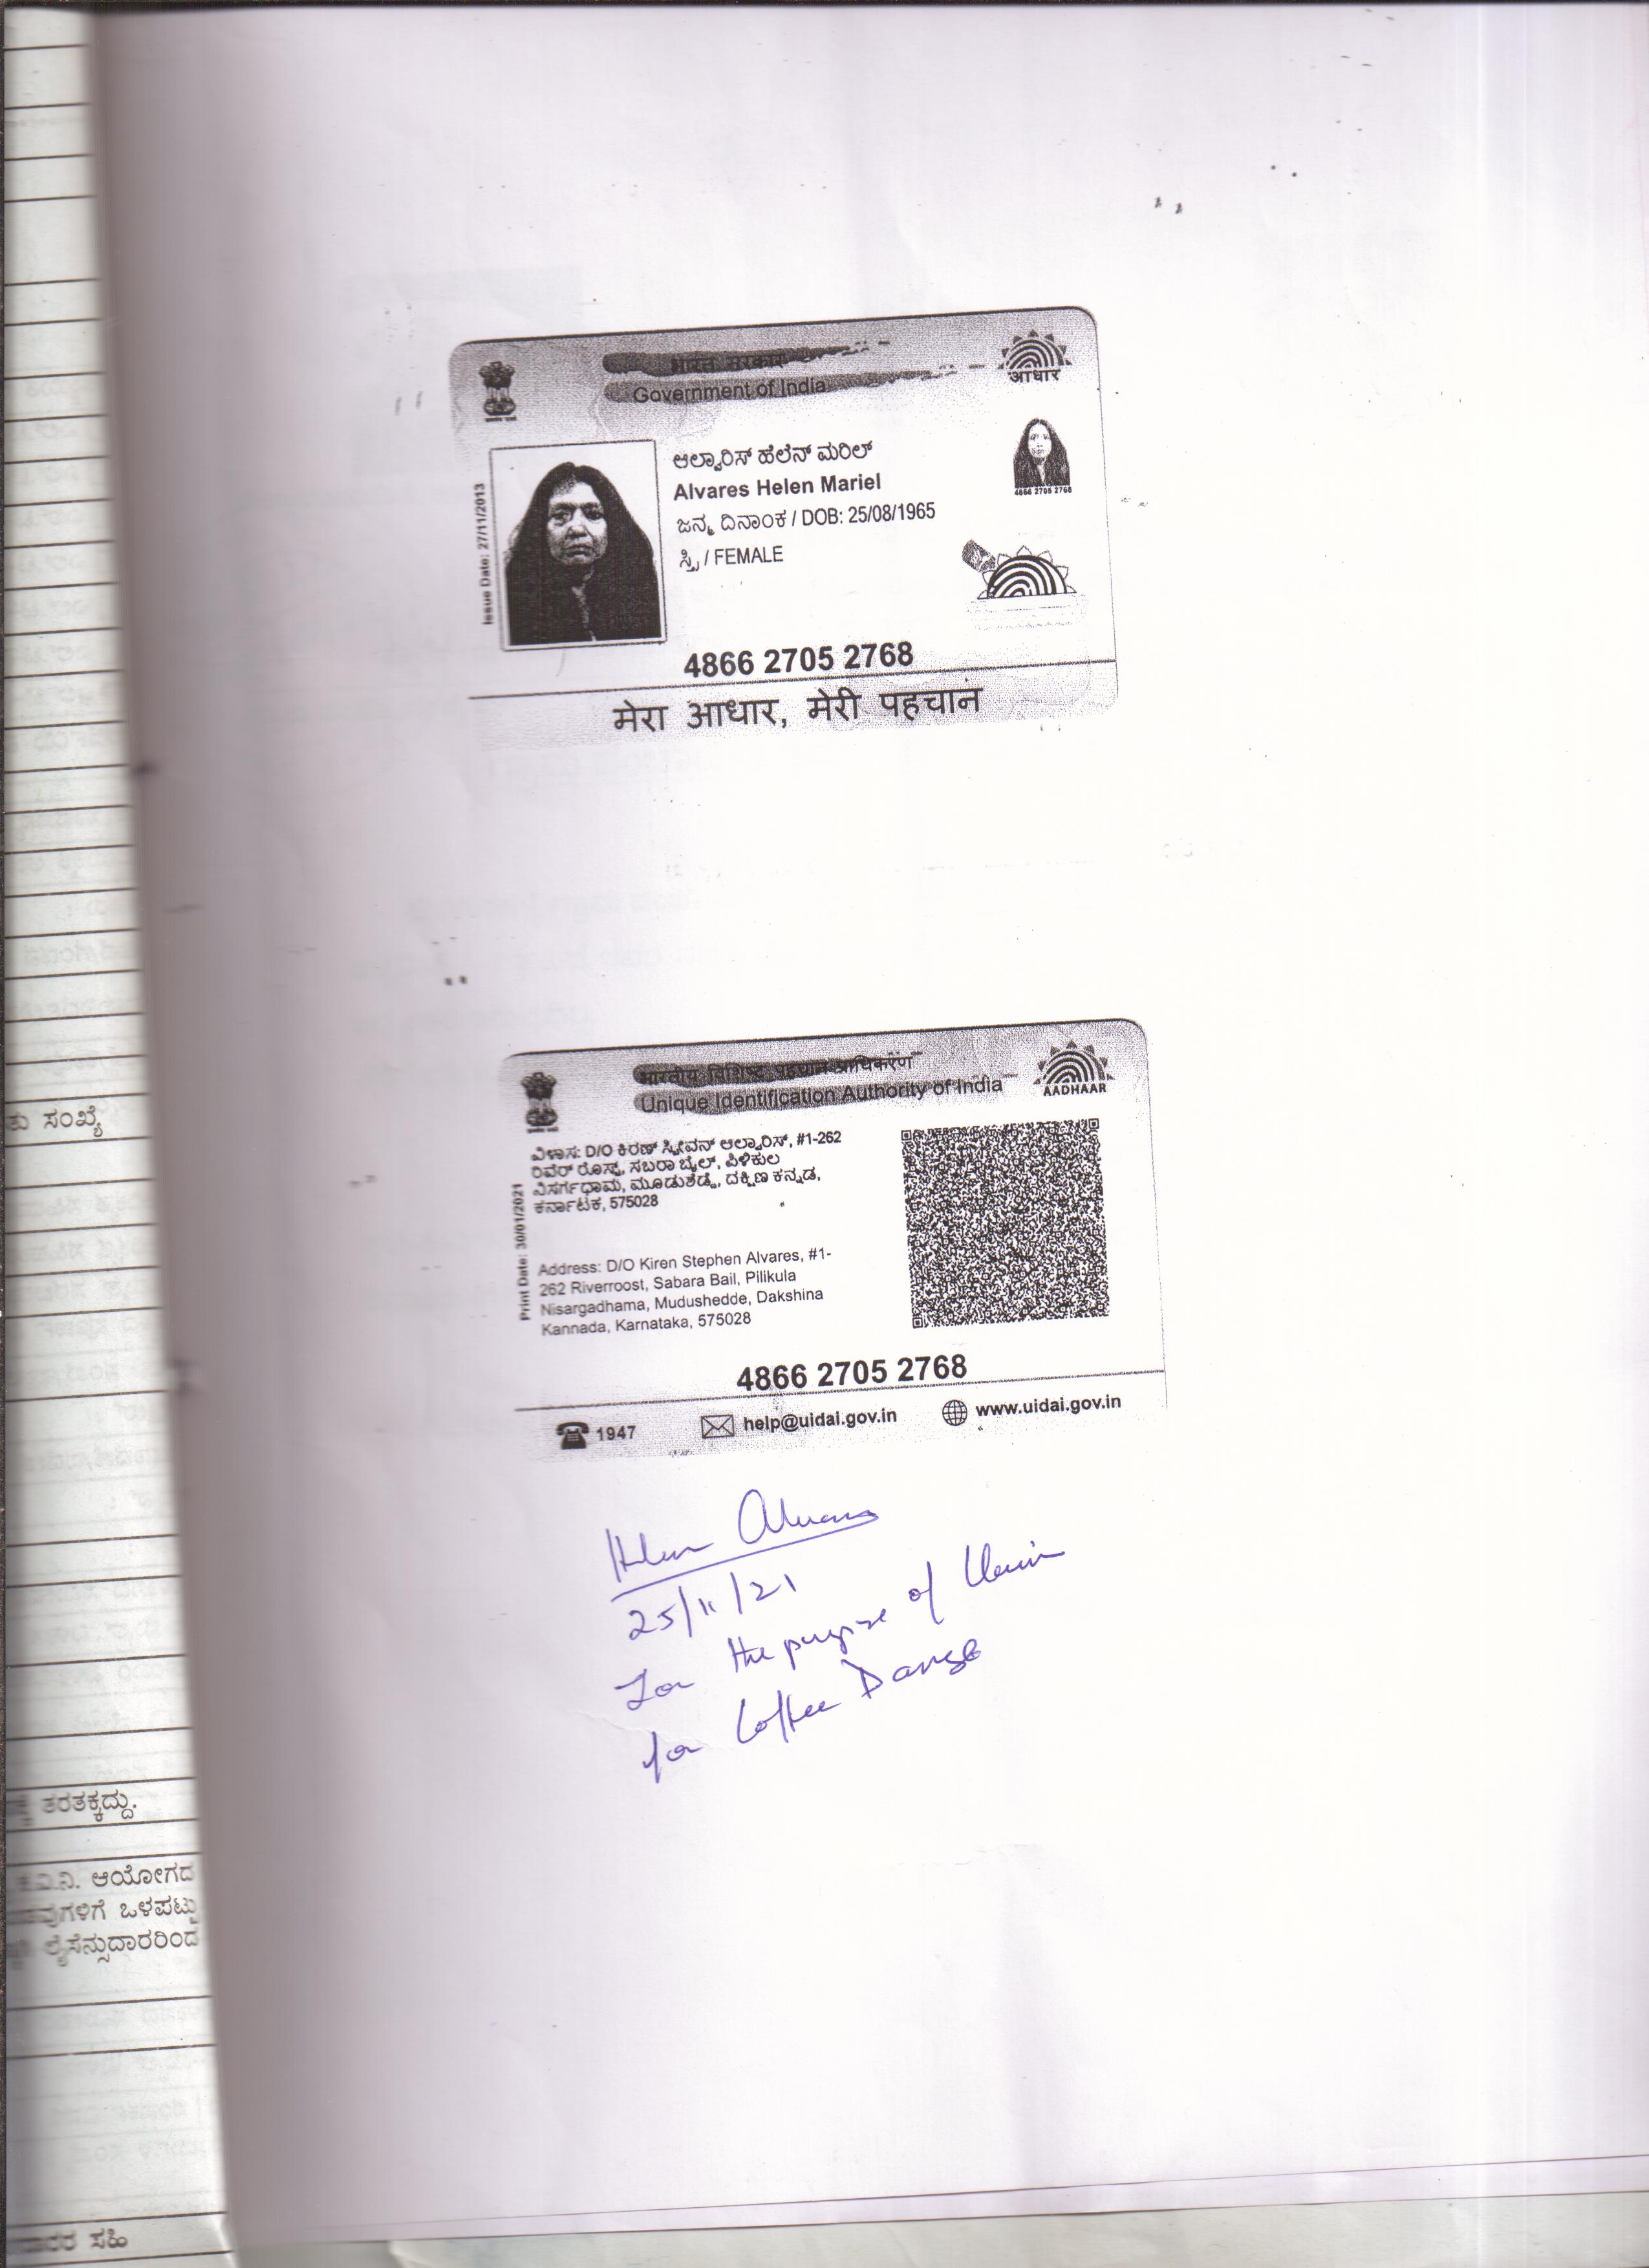 भारत सरकार
Government of India
आधार
Issue Date: 27/11/2013
ಆಲ್ವಾರಿಸ್ ಹೆಲೆನ್ ಮರಿಲ್
Alvares Helen Mariel
ಜನ್ಮ ದಿನಾಂಕ / DOB: 25/08/1965
ಸ್ತ್ರೀ / FEMALE
4866 2705 2768
4866 2705 2768
मेरा आधार, मेरी पहचान
भारतीय विशिष्ट पहचान प्राधिकरण
Unique Identification Authority of India
AADHAAR
Print Date: 30/01/2021
ವಿಳಾಸ: D/O ಕಿರಣ್ ಸ್ಟೀವನ್ ಆಲ್ವಾರಿಸ್, #1-262
ರಿವೆರ್ ರೊಸ್ಟ್, ಸಬರಾ ಬೈಲ್, ಪಿಳಿಕುಲ
ವಿಸರ್ಗಧಾಮ, ಮೂಡುಶೆಡ್ಡೆ, ದಕ್ಷಿಣ ಕನ್ನಡ,
ಕರ್ನಾಟಕ, 575028
Address: D/O Kiren Stephen Alvares, #1-
262 Riverroost, Sabara Bail, Pilikula
Nisargadhama, Mudushedde, Dakshina
Kannada, Karnataka, 575028
4866 2705 2768
1947
help@uidai.gov.in
www.uidai.gov.in
Helen Alvares
25/11/21
For the purpose of
for Coffee
ತು ಸಂಖ್ಯೆ
ತರತಕ್ಕದ್ದು.
ವಿ.ನಿ. ಆಯೋಗದ
ವುಗಳಿಗೆ ಒಳಪಟ್ಟು
ಲೈಸೆನ್ಸುದಾರರಿಂದ
ಸಹಿ